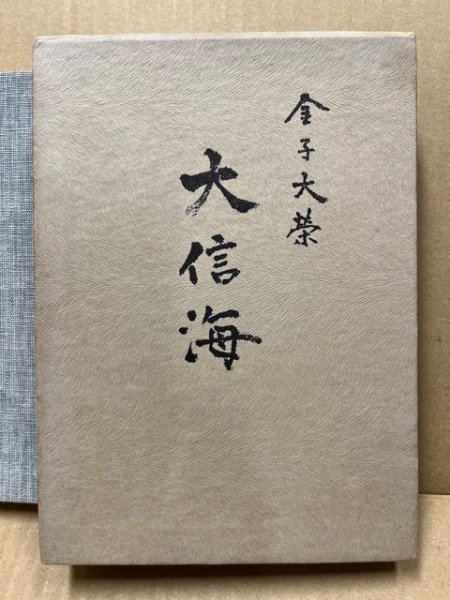 金子大榮
大信海